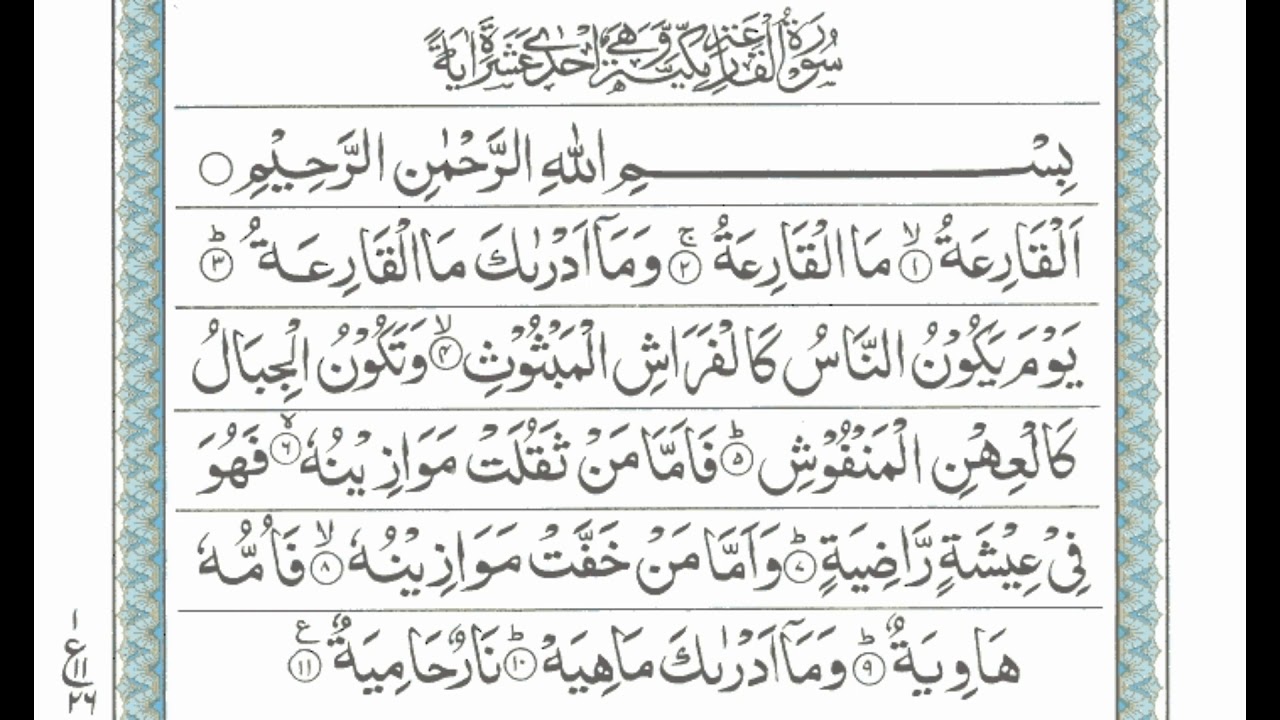 سُوْرَةُ الْقَارِعَةِ مَكِّيَّةٌ وَّهِيَ اِحْدٰى عَشَرَةَ اٰيَةً
بِسْـــــــمِ اللّٰهِ الرَّحْمٰنِ الرَّحِيْمِ ○
اَلْقَارِعَةُ ۙ﴿۱﴾ مَا الْقَارِعَةُ ۚ﴿۲﴾ وَمَاۤ اَدْرٰىكَ مَا الْقَارِعَةُ ؕ﴿۳﴾
يَوْمَ يَكُوْنُ النَّاسُ كَالْفَرَاشِ الْمَبْثُوْثِ ۙ﴿۴﴾ وَتَكُوْنُ الْجِبَالُ
كَالْعِهْنِ الْمَنْفُوْشِ ؕ﴿۵﴾ فَاَمَّا مَنْ ثَقُلَتْ مَوَازِيْنُهٗ ۙ﴿۶﴾ فَهُوَ
فِيْ عِيْشَةٍ رَّاضِيَةٍ ؕ﴿۷﴾ وَاَمَّا مَنْ خَفَّتْ مَوَازِيْنُهٗ ۙ﴿۸﴾ فَاُمُّهٗ
هَاوِيَةٌ ؕ﴿۹﴾ وَمَاۤ اَدْرٰىكَ مَاهِيَهْ ؕ﴿۱۰﴾ نَارٌ حَامِيَةٌ ﴿۱۱﴾ ع
۱
ع
۱۱
۲۶